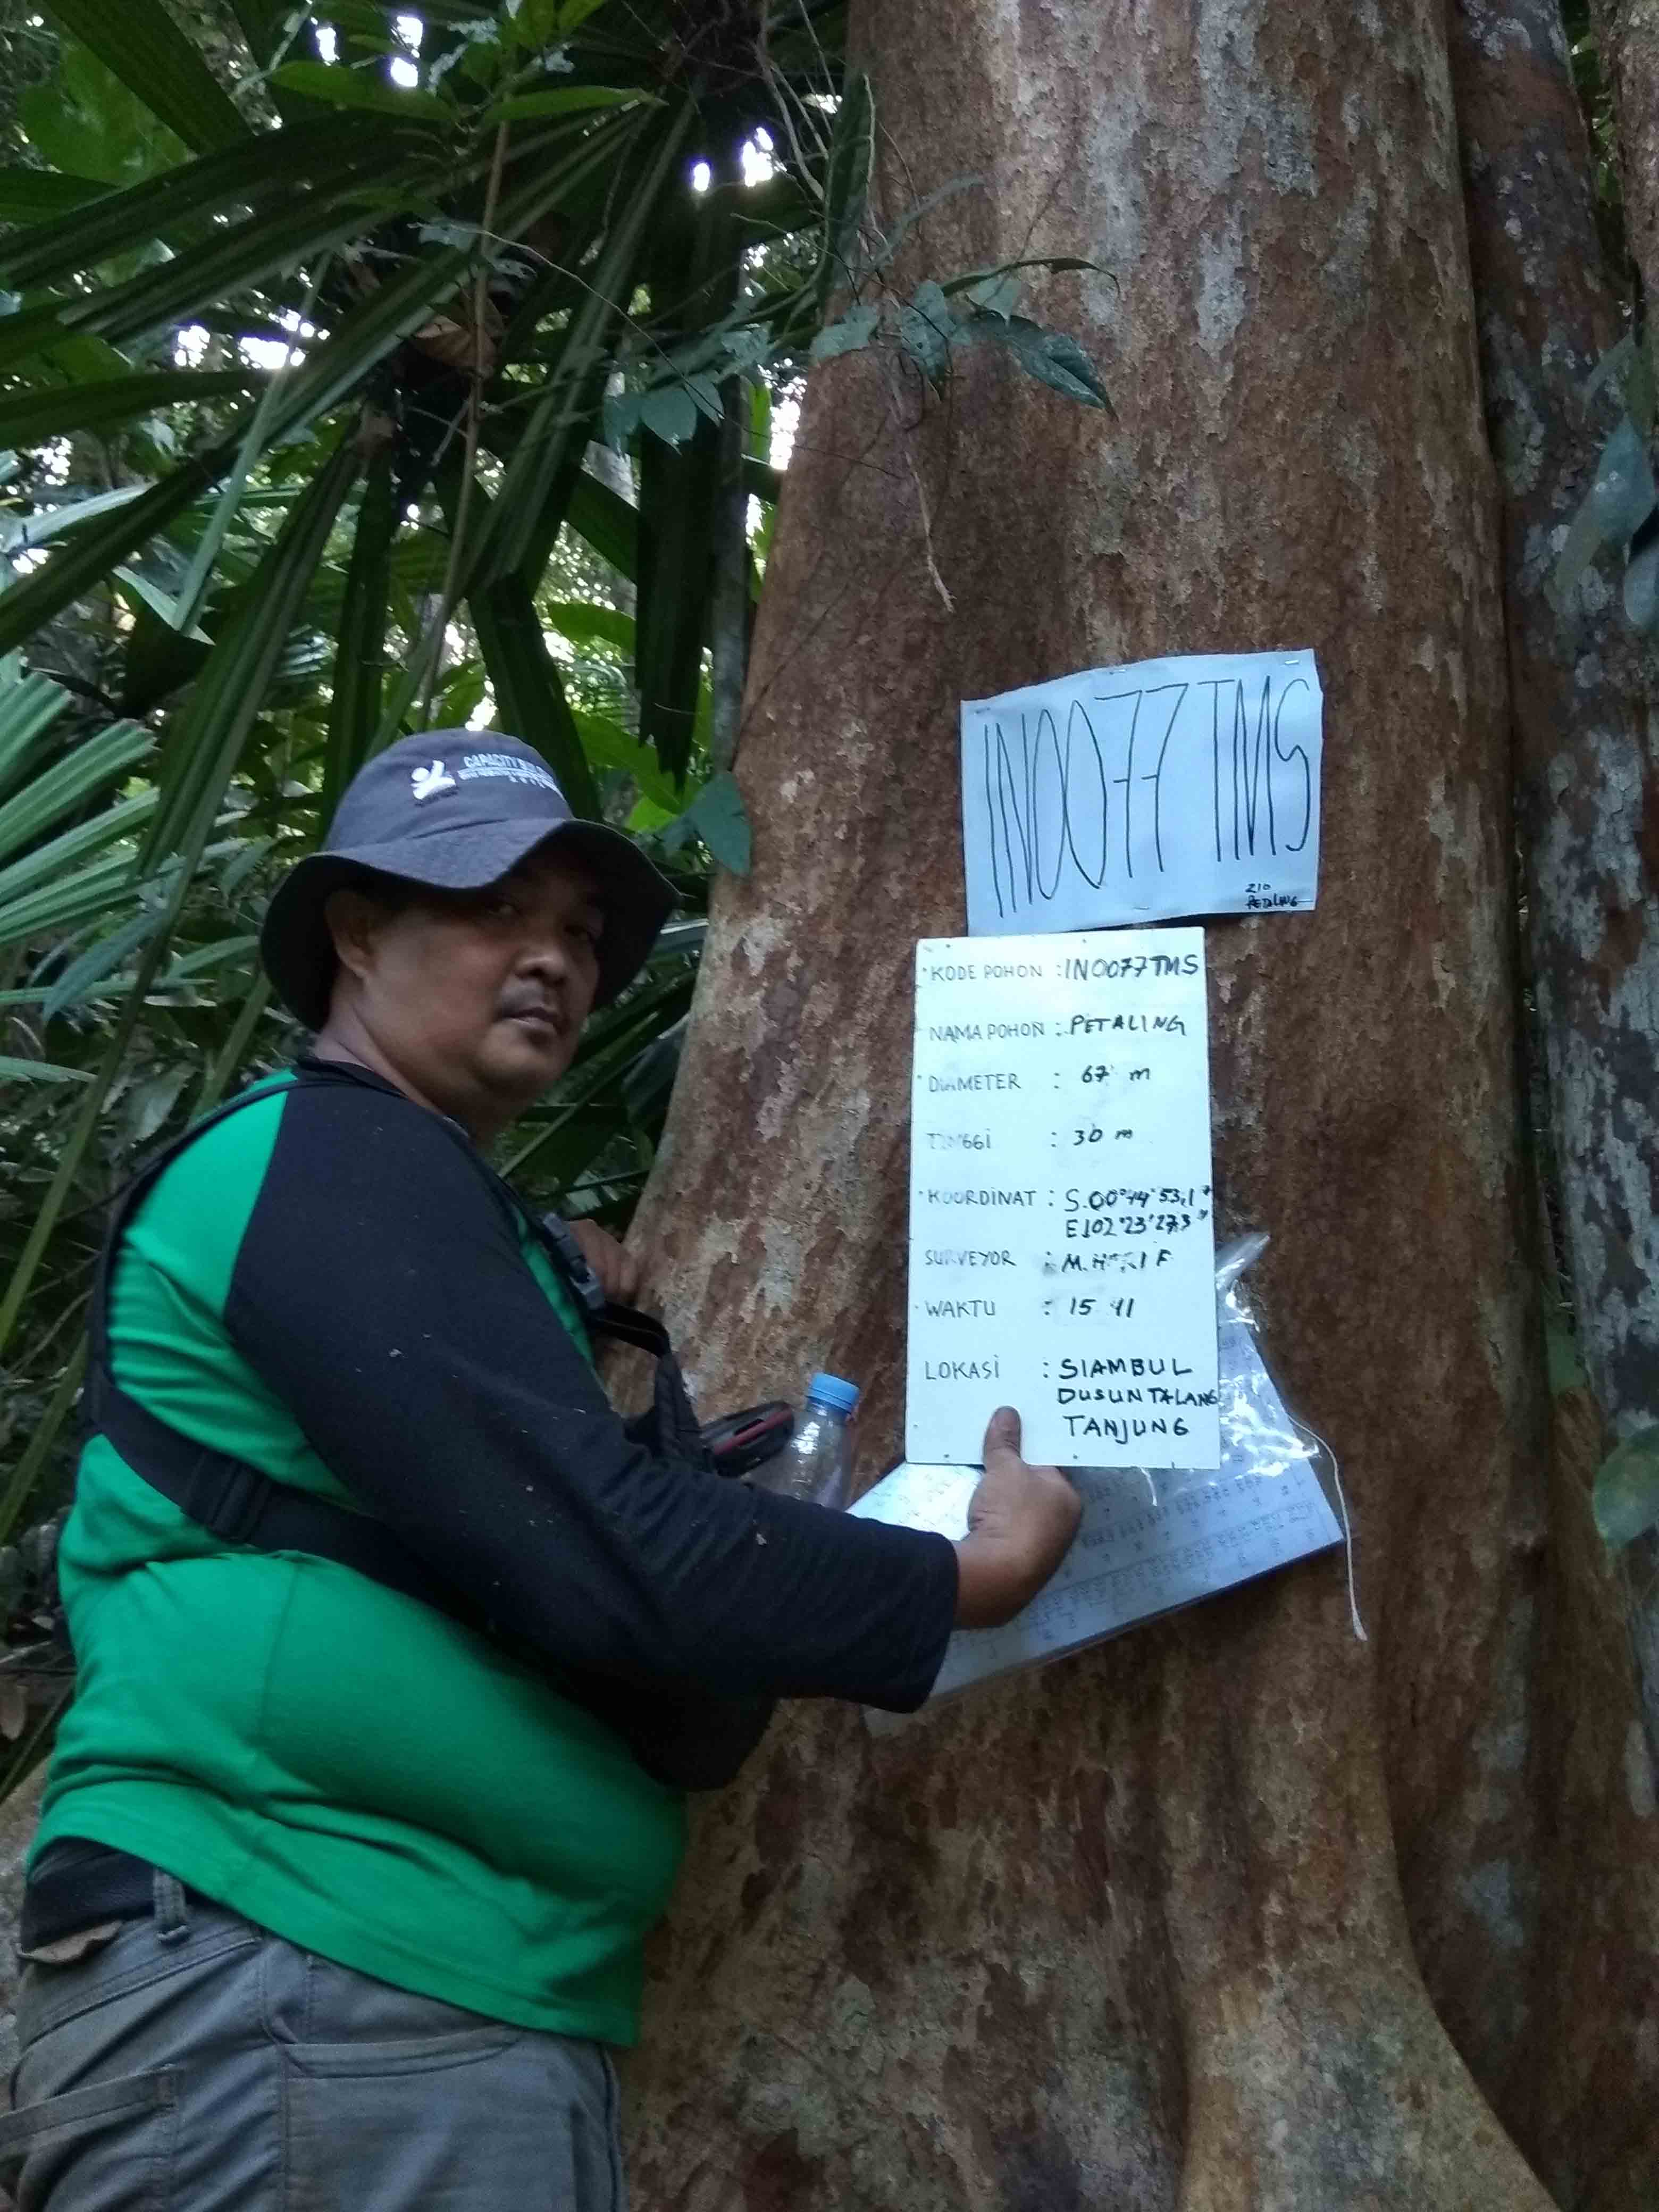 CAPACITY
IN0077 TMS
210
PETALING
KODE POHON : IN0077TMS
NAMA POHON : PETALING
DIAMETER : 67 m
TINGGI : 30 m
KOORDINAT : S.00°44'53,1"
E102°23'27,3"
SURVEYOR : M.
WAKTU : 15 41
LOKASI : SIAMBUL
DUSUN TALANG
TANJUNG